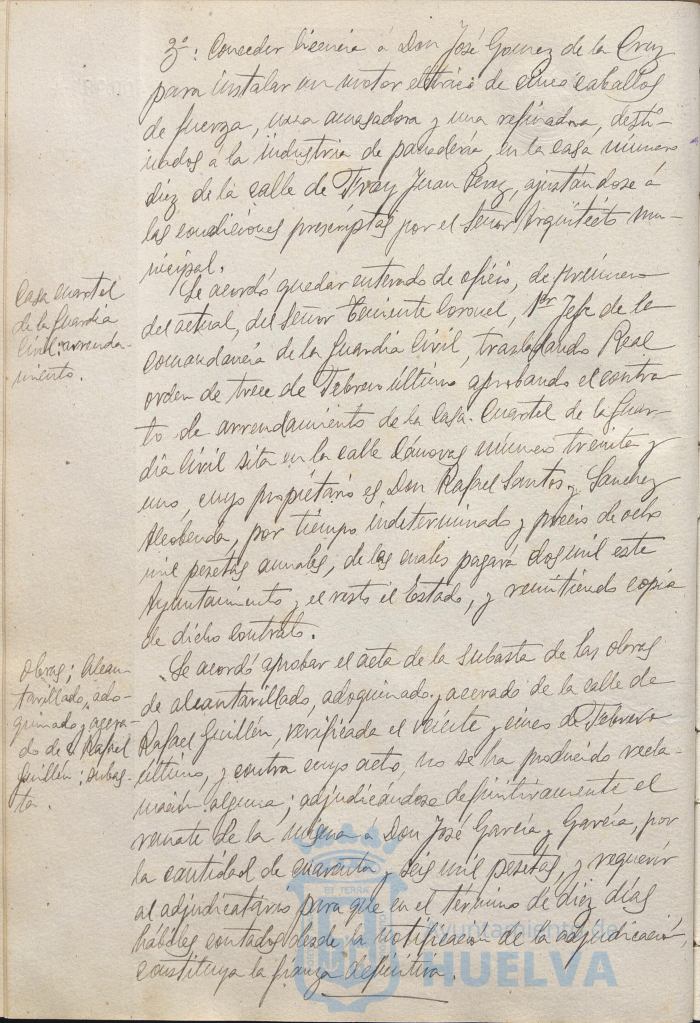 2º: Conceder licencia á Don José Gomez de la Cruz
para instalar un motor eléctrico de cinco caballos
de fuerza, una amasadora y una refinadora, desti-
nados a la industria de panadería, en la casa número
diez de la calle de Fray Juan Perez, ajustándose á
las condiciones prescriptas por el Señor Arquitecto mu-
nicipal.
Casa cuartel
de la Guardia
Civil: arrenda-
miento.
Se acordó quedar enterado de oficio, de primero
del actual, del Señor Teniente Coronel, 1er Jefe de la
Comandancia de la Guardia Civil, trasladando Real
orden de trece de Febrero último aprobando el contra-
to de arrendamiento de la Casa-Cuartel de la Guar-
dia Civil sita en la calle Cánovas número treinta y
uno, cuyo propietario es Don Rafael Santos y Sanchez
Alcobenda, por tiempo indeterminado y precio de ocho
mil pesetas anuales, de las cuales pagará dos mil este
Ayuntamiento y el resto el Estado, y remitiendo copia
de dicho contrato.
Obras; Alcan-
tarillado, ado-
quinado y acera-
do de C. Rafael
Guillén: subas-
ta.
Se acordó aprobar el acta de la subasta de las obras
de alcantarillado, adoquinado y acerado de la calle de
Rafael Guillén, verificada el veinte y cinco de Febrero
último, y contra cuyo acto, no se ha producido recla-
mación alguna; adjudicándose definitivamente el
remate de la misma á Don José García y García, por
la cantidad de cuarenta y seis mil pesetas, y requerir
al adjudicatario para que en el término de diez días
hábiles contados desde la notificación de la adjudicación,
constituya la fianza definitiva.
Ayuntamiento de
HUELVA